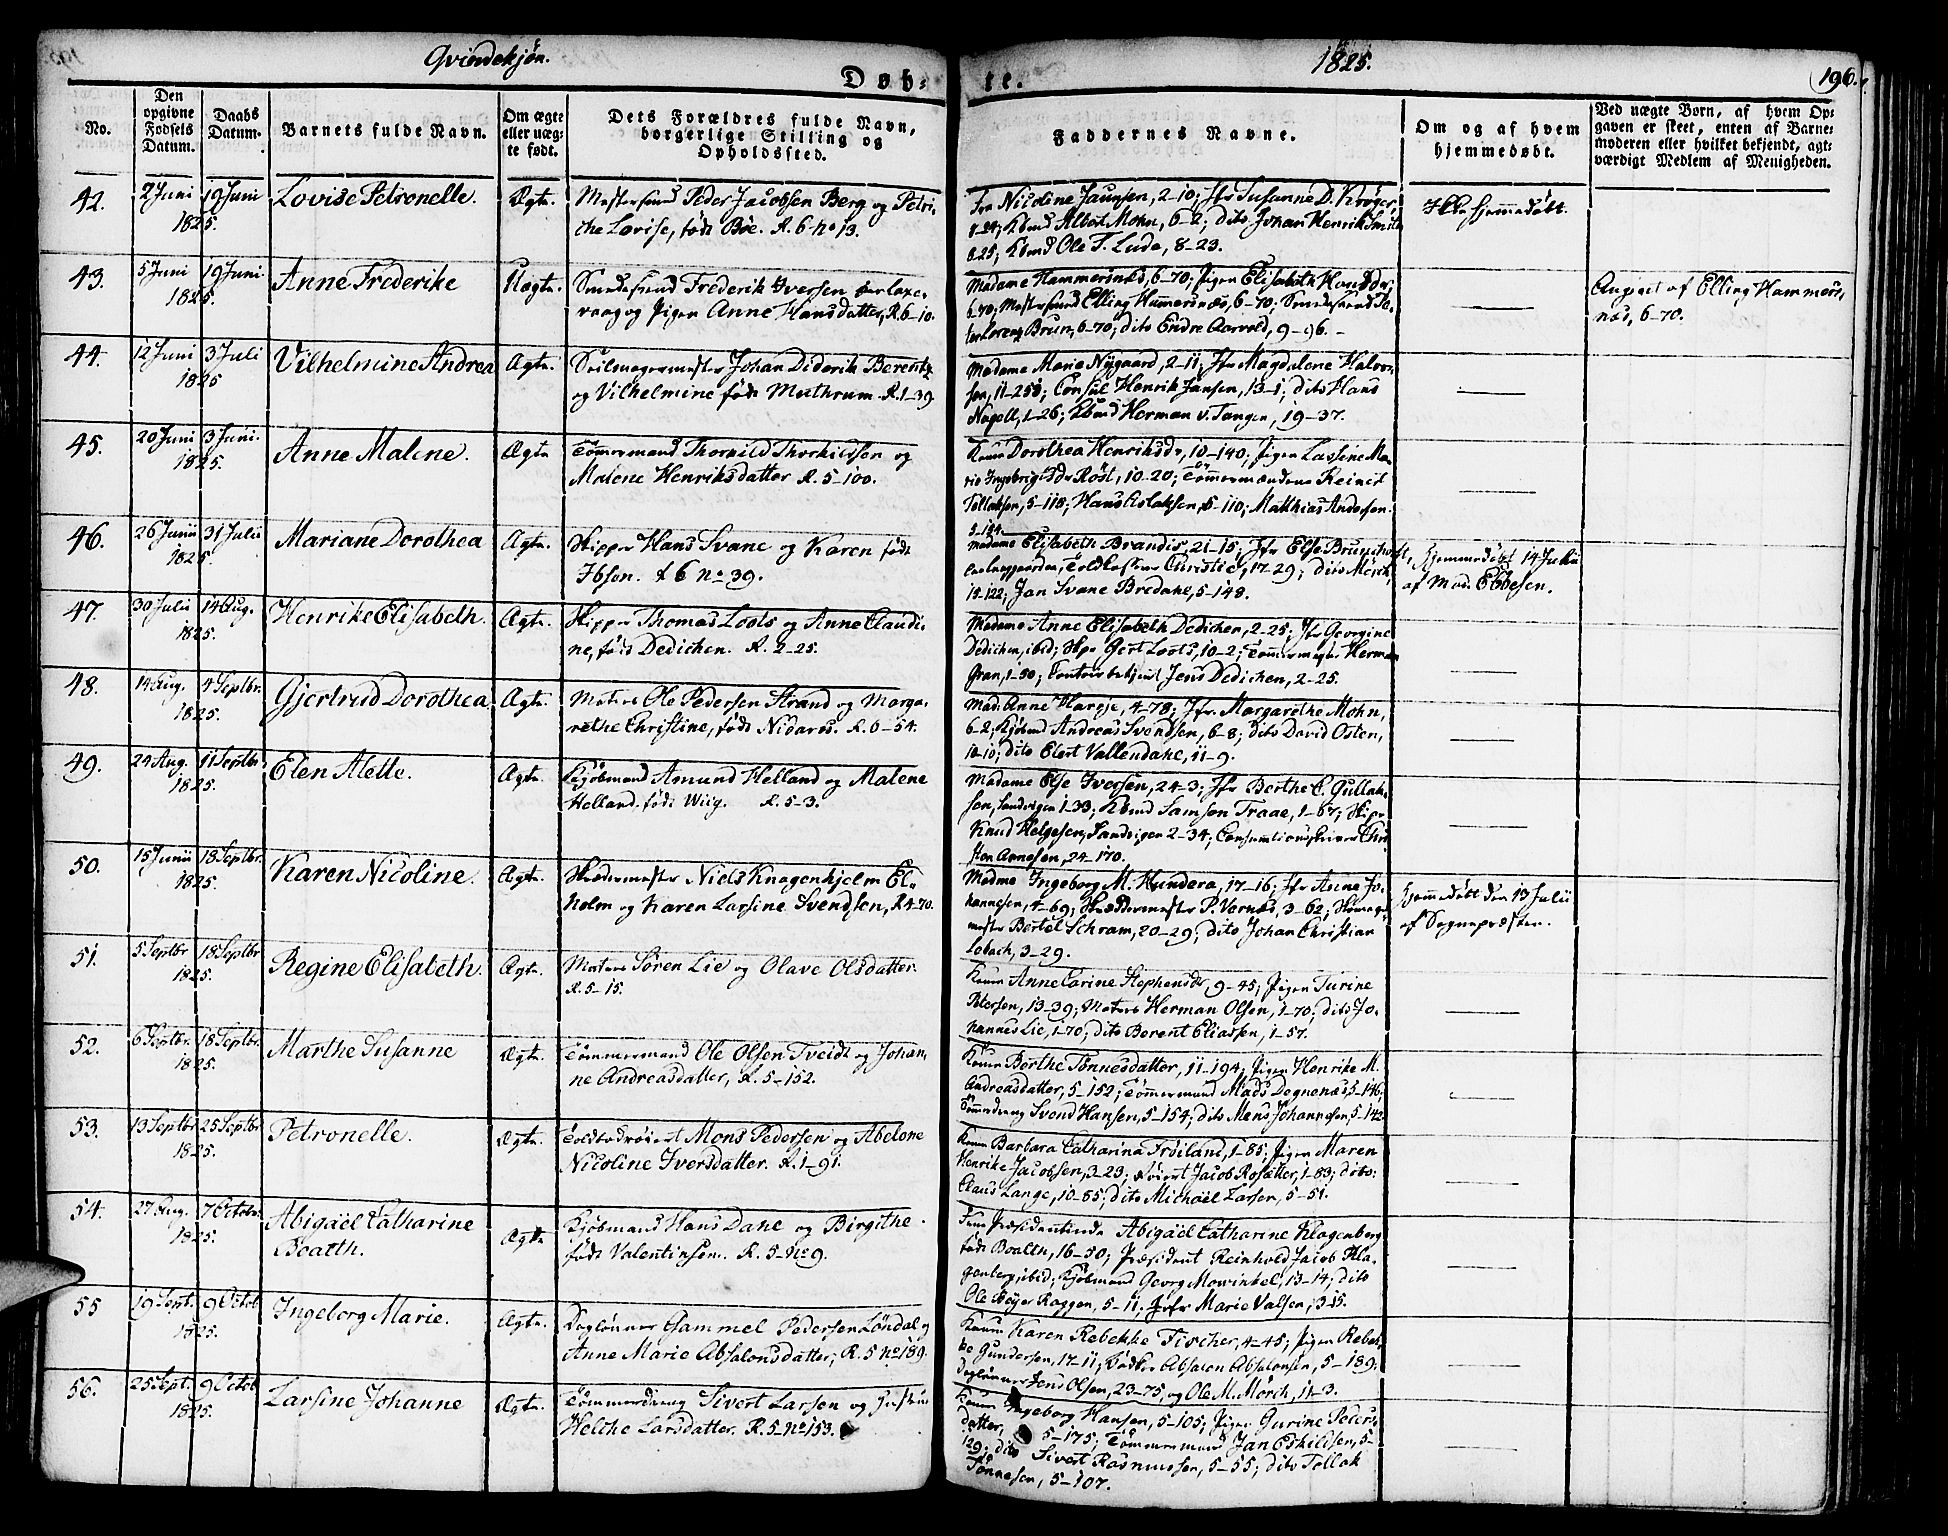 Qvindekjøn.
Døb-
te.
1825.
196.
No.
Den opgivne Fødsels Datum.
Daabs Datum.
Barnets fulde Navn.
Om ægte eller uægte født.
Dets Forældres fulde Navn, borgerlige Stilling og Opholdssted.
Faddernes Navne.
Om og af hvem hjemmedøbt.
Ved uægte Børn, af hvem Opgaven er skeet, enten af Barnemoderen eller hvilket bekjendt, agtværdigt Medlem af Menigheden.
42. 7 Juni 1825. 19 Juni Lovise Petronelle. Ægte.
Mestersvend Peder Jacobsen Berg og Petri-
che Lovise, født Bøe. R. 6 no 13.
Fru Nicoline Jansen, 2-10; Jfr Susanne D. Krøger,
Kbmd Albert Mohn, 6-2; dito Johan Henrik Smit
8-25; Kbmd Ole T. Lude, 8-23.
Ikke hjemmedøbt.
43. 5 Juni 1825. 19 Juni. Anne Frederike Uægte.
Smedesvend Frederik Iversen
vaag og Pigen Anne Hansdatter, R. 6-10.
Madame Hammersnæs, 6-70; Pigen Elisabeth Hansdr,
6-70; Mestersvend Elling Hammersnæs, 6-70; Smedesvend Pe-
ter Lorentz Brun, 6-70; dito Endre Aarvold, 9-96.
Angivet af Elling Hammers-
næs, 6-70.
44. 12 Juni 1825 3 Juli Vilhelmine Andrea Ægte.
Seilmagermester Johan Diderik Berentz
og Vilhelmine født Muthrum. R. 1-39
Madame Marie Nygaard, 2-11; Jfr Magdelene Halvor-
sen, 11-258; Consul Henrik Jansen, 13-1; dito Hans
Nagell, 1-26; Kbmd Herman v. Tangen, 19-37.
45. 20 Juni 1825. 3 Juni. Anne Malene. Ægte
Tømmermand Thorkild Thorkildsen og
Malene Henriksdatter R. 5-100.
Konen Dorothea Henriksdr, 10-140; Pigen Lassine Ma-
rie Ingebrigtsdr Røst, 10-20; Tømmermændene Reinert
Tollaksen, 5-118; Hans Aslaksen, 5-110; Matthias Andersen
5-124.
46. 26 Junii 1825. 31 Julii Mariane Dorothea Ægte.
Skipper Hans Svane og Karen født
Ibsen. R 6 no 39.
Madame Elisabeth Brandis, 21-15; Jfr Else Brunchorst,
Toldkasserer Christie, 17-29; dito Mørk,
15-122; Jan Svane Bredahl, 5-148.
Hjemmedøbt 14 Julii
af Mad. Ebbesen.
47. 30 Julii 1825. 14 Aug. Henrike Elisabeth. Ægte.
Skipper Thomas Loots og Anne Claudi-
ne, født Dedichen. R. 2-25.
Madame Anne Elisabeth Dedichen, 2-25; Jfr Georgine
Dedichen, ibid; Skpr Gert Loots, 10-2; Tømmermester Herman
Gran, 1-50; Contoirbetjent Jens Dedichen, 2-25.
48. 14 Aug. 1825. 4 Septbr. Gjertrud Dorothea Ægte.
Matros Ole Pedersen Strand og Marga-
rethe Christine, født Nidarøs. R. 6-54.
Mad. Anne Harzje, 4-78; Jfr. Margarethe Mohn,
6-2; Kjøbmd Andreas Svendsen, 6-8; dito David Osten,
10-10; dito Elert Vallendahl, 11-9.
49. 24 Aug. 1825. 11 Septbr Elen Alette. Ægte.
Kjøbmand Amund Helland og Malene
Helland, født Wiig. R. 5-3.
Madame Else Iversen, 24-3; Jfr Berthe C. Gullak-
sen, Sandvigen 1-33; Kbmd Samson Traae, 1-67; Skipr
Knud Helgesen, Sandvigen 2-34; Consumtionsskriver Chri-
stian Arnesen, 24-170.
50. 15 Junii 1825. 18 Septbr. Karen Nicoline. Ægte.
Skrædermester Niels Knagenhjelm El-
holm og Karen Larsine Svendsen, R. 4-70.
Madme Ingeborg M. Hundera, 17-16; Jfr Anne Jo-
hannesen, 4-69; Skræddermester P. Vernæs, 3-62; Skomager
mester Bertel Schram, 20-29; dito Johan Christian
Lobach, 3-29.
Hjemmedøbt den 13 Julii
af Sognepræsten.
51. 5 Septbr 1825. 18 Septbr Regine Elisabeth. Ægte.
Matros Søren Lie og Olave Olsdatter.
R. 5-15.
Konen Anne Carine Stephensdr, 9-45; Pigen Turine
Petersen, 13-39; Matros Herman Olsen, 1-70; dito Jo-
hannes Lie, 1-70; dito Berent Eliassen, 1-57.
52. 6 Septbr. 1825. 18 Septbr. Marthe Susanne Ægte.
Tømmermand Ole Olsen Tveidt og Johan-
ne Andreasdatter, R. 5-152.
Konen Berthe Tønnesdatter, 11-194; Pigen Henrike M.
Andreasdatter, 5-152; Tømmermand Mads Degnenæs, 5-146;
Tømmerdreng Svend Hansen, 5-154; dito Mons Johannesen, 5-142
53. 13 Septbr 1825. 25 Septbr Petronelle. Ægte.
Toldbodrorert Mons Pedersen og Abelone
Nicoline Iversdatter. R. 1-91.
Konen Barbara Catharina Frøiland, 1-85; Pigen Maren
Henrike Jacobsen, 3-23; Jacob Rosætter, 1-83; dito
Claus Lange, 10-85; dito Michael Larsen, 5-51.
54. 27 Aug. 1825. 7 Octobr. Abigäel Catharine
Boalth. Ægte
Kjøbmand Hans Dahl og Birgithe
født Valentinsen. R. 5-no 9.
Frue Præsidentinde Abigäel Catharine Klagenberg
født Boalth, 16-50; Præsident Reinhold Jacob Kla-
genberg, ibid; Kjøbmand Georg Mowinkel, 13-14; dito
Ole Bøyer Raggen, 5-11; Jfr Marie Valsen, 3-15.
55 19 Sept. 1825. 9 Octob Ingeborg Marie. Ægte.
Dagløner Gammel Pedersen Løndal og
Anne Marie Absalonsdatter; R. 5 no 189.
Konen Karen Rebekke Fischer, 4-45; Pigen Rebek-
ke Gundersen, 17-11; Bødker Absalon Absalonsen, 5-189;
Dagløner Jens Olsen, 23-75, og Ole M. Mørch, 11-3.
56. 25 Sept. 1825. 9 Octob Larsine Johanne Ægte.
Tømmerdreng Sivert Larsen og
Helche Larsdatter. R. 5-no 153.
Konen Ingeborg Hansen, 5-105; Pigen Gurine Peders-
datter, 5-175; Tømmermand Jan Eskildsen, 5-
129; dito Sivert Rasmussen, 5-55; dito Tollak
Tønnesen, 5-107.